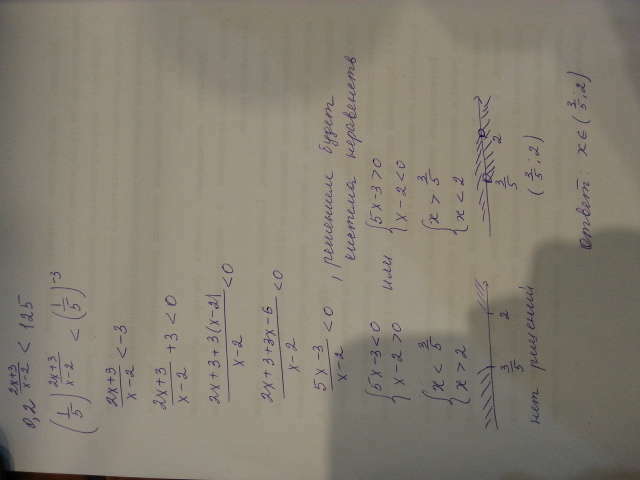 0,2^((2x+3)/(x-2)) < 125
(1/5)^((2x+3)/(x-2)) < (1/5)^(-3)
(2x+3)/(x-2) < -3
(2x+3)/(x-2) + 3 < 0
(2x+3+3(x-2))/(x-2) < 0
(2x+3+3x-6)/(x-2) < 0
(5x-3)/(x-2) < 0 , решением будет
система неравенств
{5x-3<0 или {5x-3>0
{x-2>0 {x-2<0
{x < 3/5 {x > 3/5
{x > 2 {x < 2
3/5 2 3/5 2
нет решений (3/5; 2)
Ответ: x∈(3/5; 2)